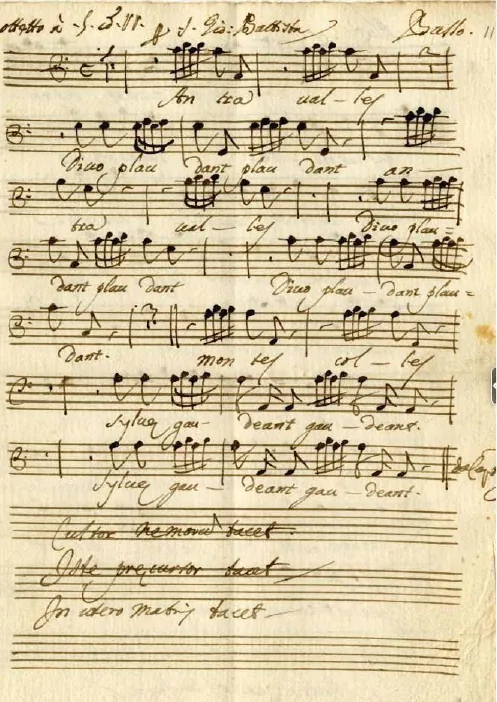 ottetto à 5. co VV. p S. Gio: Battista Basso. 11
An tra val - les
Divo plau dant plau dant an
tra val - les Divo plau =
dant plau dant Divo plau - dant plau =
dant. mon tes col - les
Sylvę gau - deant gau - deant.
da Capo
Sylvę gau - deant gau - deant.
Cultor nemorũ tacet.
Iste precursor tacet
In utero Matris tacet